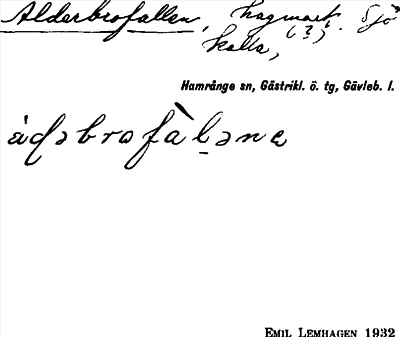 Alderbrofallen, hagmark. Sjö
kalla, (?)
Hamrånge sn, Gästrikl. ö. tg, Gävleb. l.
àɖəbrofàl̲əna
EMIL LEMHAGEN 1932